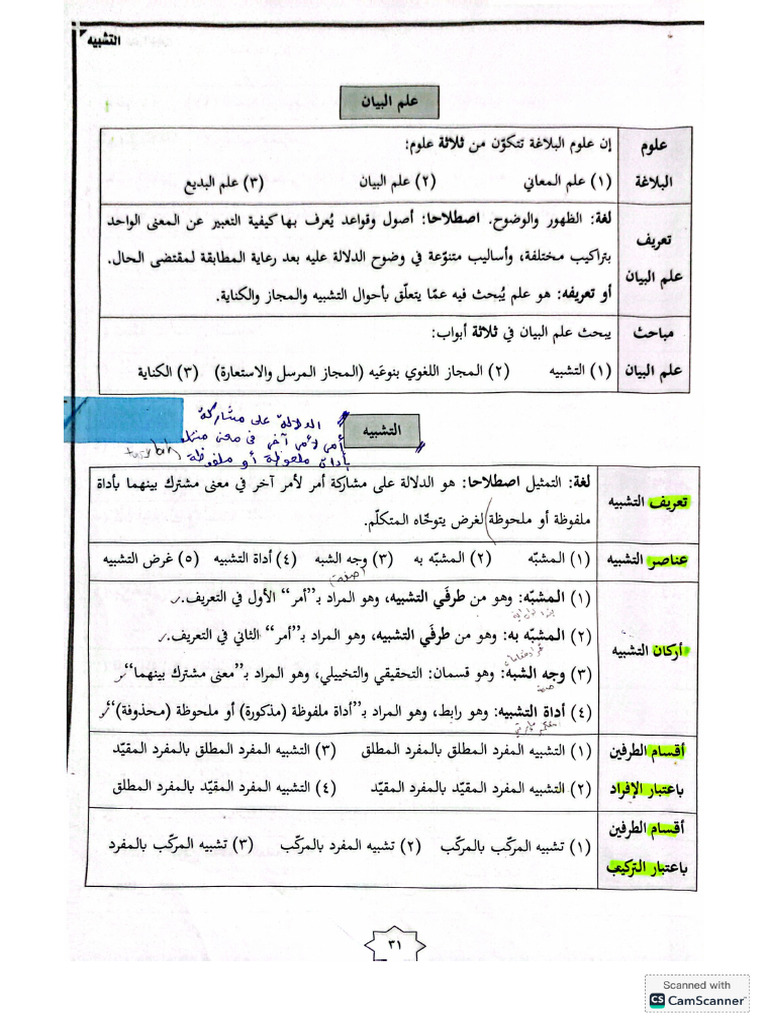 التشبيه
علم البيان
علوم البلاغة
إن علوم البلاغة تتكوّن من ثلاثة علوم:
(١) علم المعاني (٢) علم البيان (٣) علم البديع
تعريف علم البيان
لغة: الظهور والوضوح. اصطلاحا: أصول وقواعد يُعرف بها كيفية التعبير عن المعنى الواحد
بتراكيب مختلفة، وأساليب متنوّعة في وضوح الدلالة عليه بعد رعاية المطابقة لمقتضى الحال.
أو تعريفه: هو علم يُبحث فيه عمّا يتعلّق بأحوال التشبيه والمجاز والكناية.
مباحث علم البيان
يبحث علم البيان في ثلاثة أبواب:
(١) التشبيه (٢) المجاز اللغوي بنوعَيه (المجاز المرسل والاستعارة) (٣) الكناية
التشبيه
الدلالة على مشاركة
أمر لأمر آخر في معنى
بأداة ملحوظة أو ملفوظة
تعريف التشبيه
لغة: التمثيل اصطلاحا: هو الدلالة على مشاركة أمر لأمر آخر في معنى مشترك بينهما بأداة
ملفوظة أو ملحوظة لغرض يتوخّاه المتكلّم.
عناصر التشبيه
(١) المشبّه (٢) المشبّه به (٣) وجه الشبه (٤) أداة التشبيه (٥) غرض التشبيه
أركان التشبيه
(١) المشبّه: وهو من طرفَي التشبيه، وهو المراد بـ”أمر“ الأول في التعريف.
(٢) المشبّه به: وهو من طرفَي التشبيه، وهو المراد بـ”أمر“ الثاني في التعريف.
(٣) وجه الشبه: وهو قسمان: التحقيقي والتخييلي، وهو المراد بـ”معنى مشترك بينهما“
صفة
(٤) أداة التشبيه: وهو رابط، وهو المراد بـ”أداة ملفوظة (مذكورة) أو ملحوظة (محذوفة)“
أقسام الطرفين باعتبار الإفراد
(١) التشبيه المفرد المطلق بالمفرد المطلق (٣) التشبيه المفرد المطلق بالمفرد المقيّد
(٢) التشبيه المفرد المقيّد بالمفرد المقيّد (٤) التشبيه المفرد المقيّد بالمفرد المطلق
أقسام الطرفين باعتبار التركيب
(١) تشبيه المركّب بالمركّب (٢) تشبيه المفرد بالمركّب (٣) تشبيه المركّب بالمفرد
٣١
Scanned with
CS CamScanner